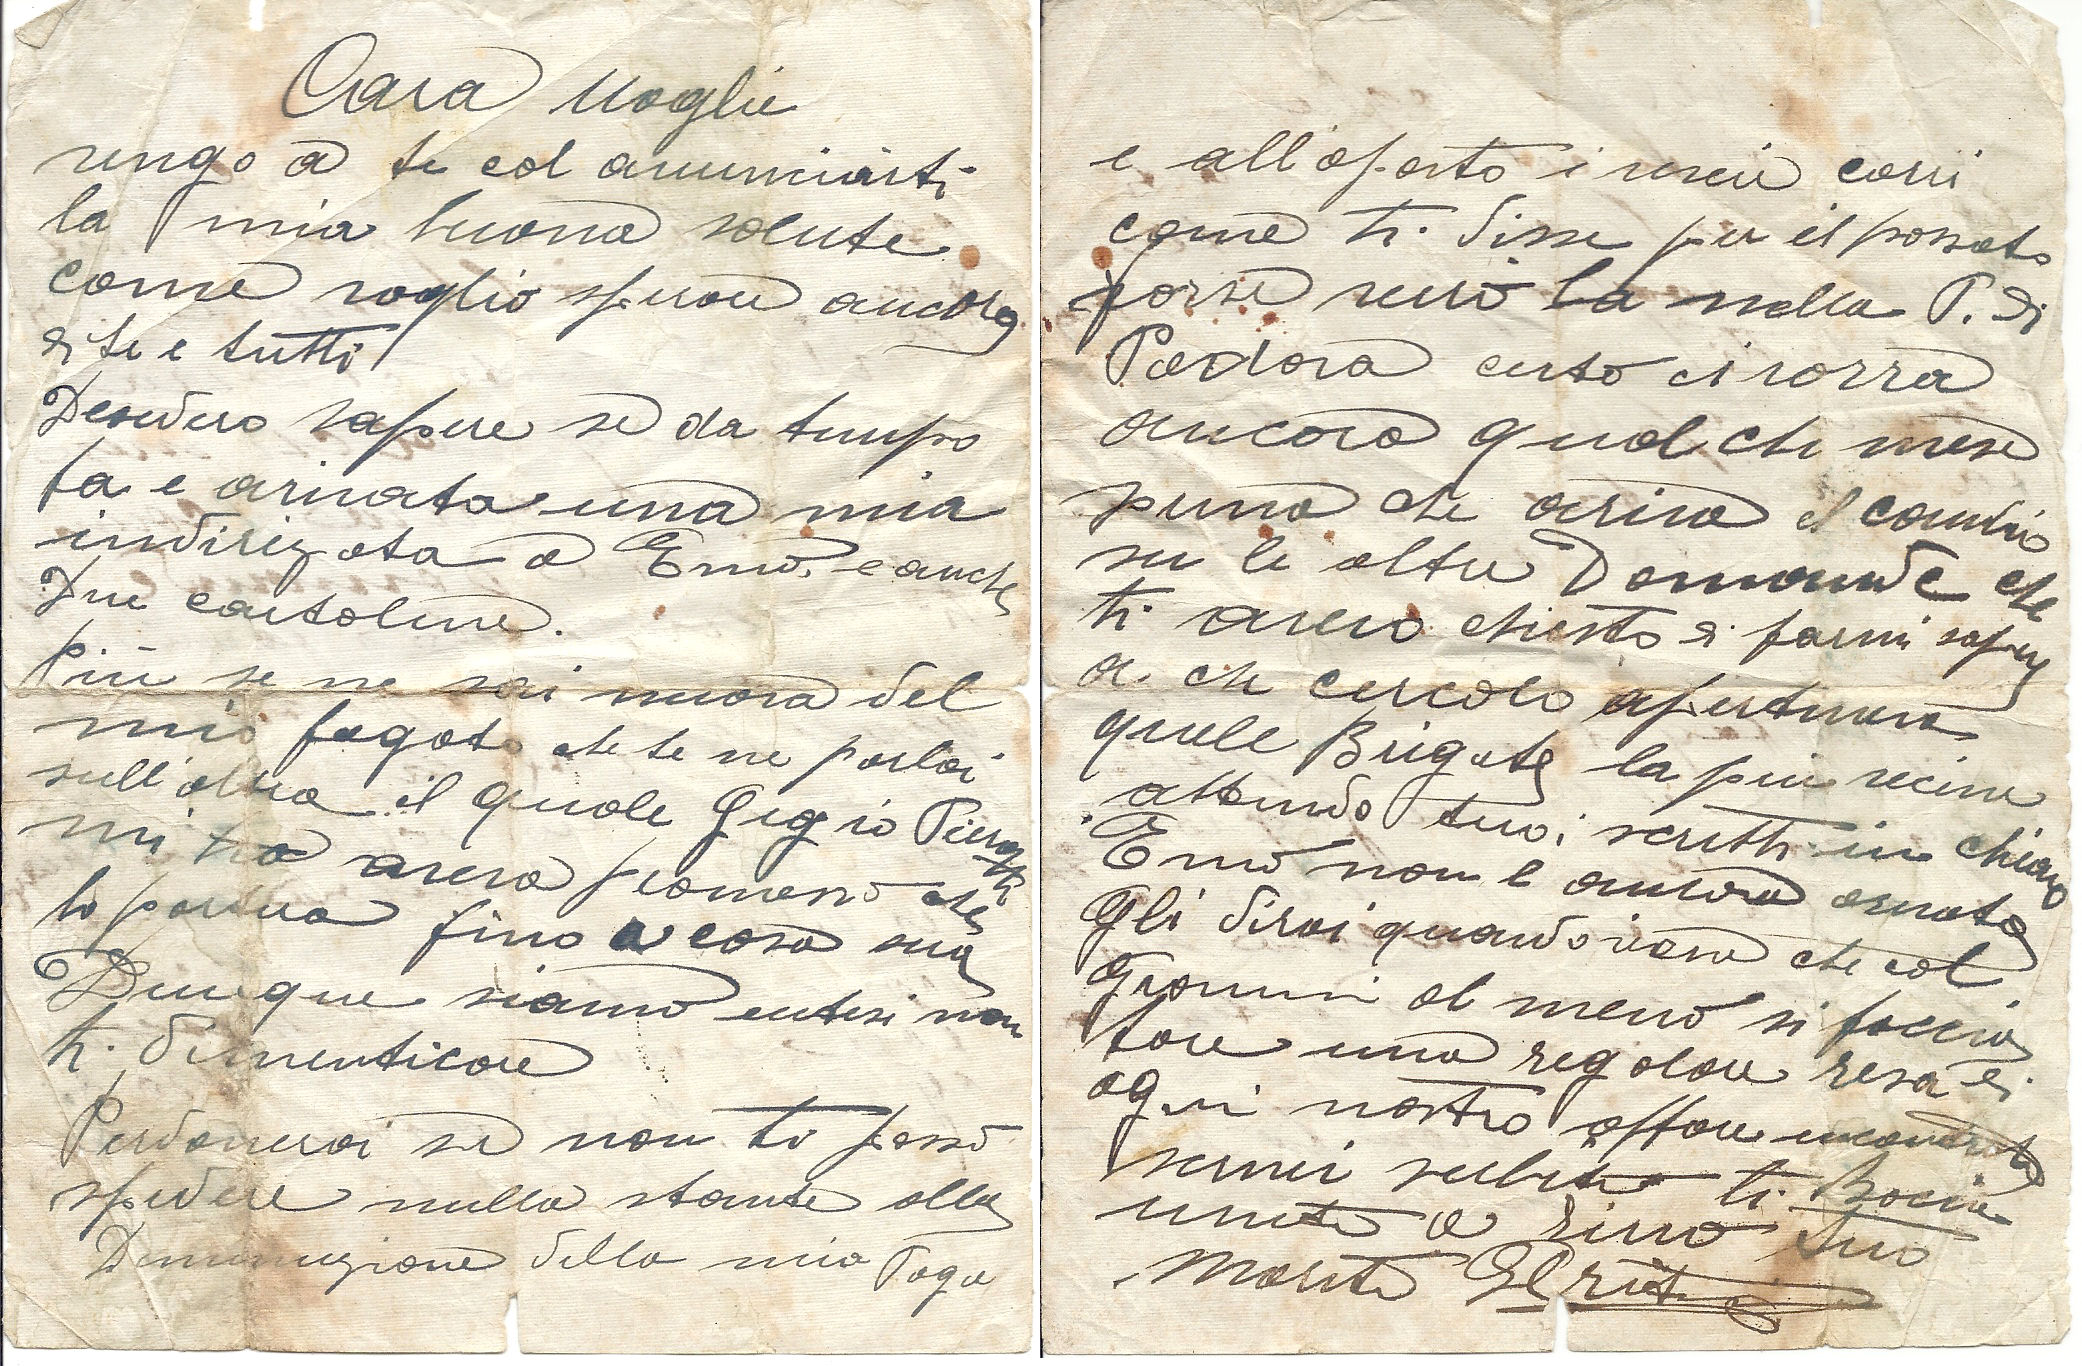 Cara Moglie
vengo a te col anunciarti
la mia buona salute
come voglio sperare ancora
di te e tutti
Desidero sapere se da tempo
fa e arivata una mia
indirizata a Emo, e anche
Due cartoline.
Più se ne sai nuova del
mio fagoto che te ne parlai
sull'altra il quale Gegio
mi aveva promesso che
lo portava fino a casa sua
Dunque siamo intesi non
ti dimenticare
Perdonerai se non ti posso
spedire nulla stante alla
Diminuzione della mia Paga
e all'oposto i viveri cari
come ti disse per il passato
forse verò la nella P. di
Padova certo ci vorrà
ancora qual che mese
prima che ariva il cambio
su le altre Domande che
ti avevo chiesto di farmi sapere
a che circolo apertiene
quale Brigata la più vecina
attendo tuoi scritti in chiaro
Emo non è ancora arivato
Gli dirai quando viene che col
al meno si faccia
fare una regolare resa di
ogni nostro affare
scrivi subito ti Bacia
unita a Tuo
Marito